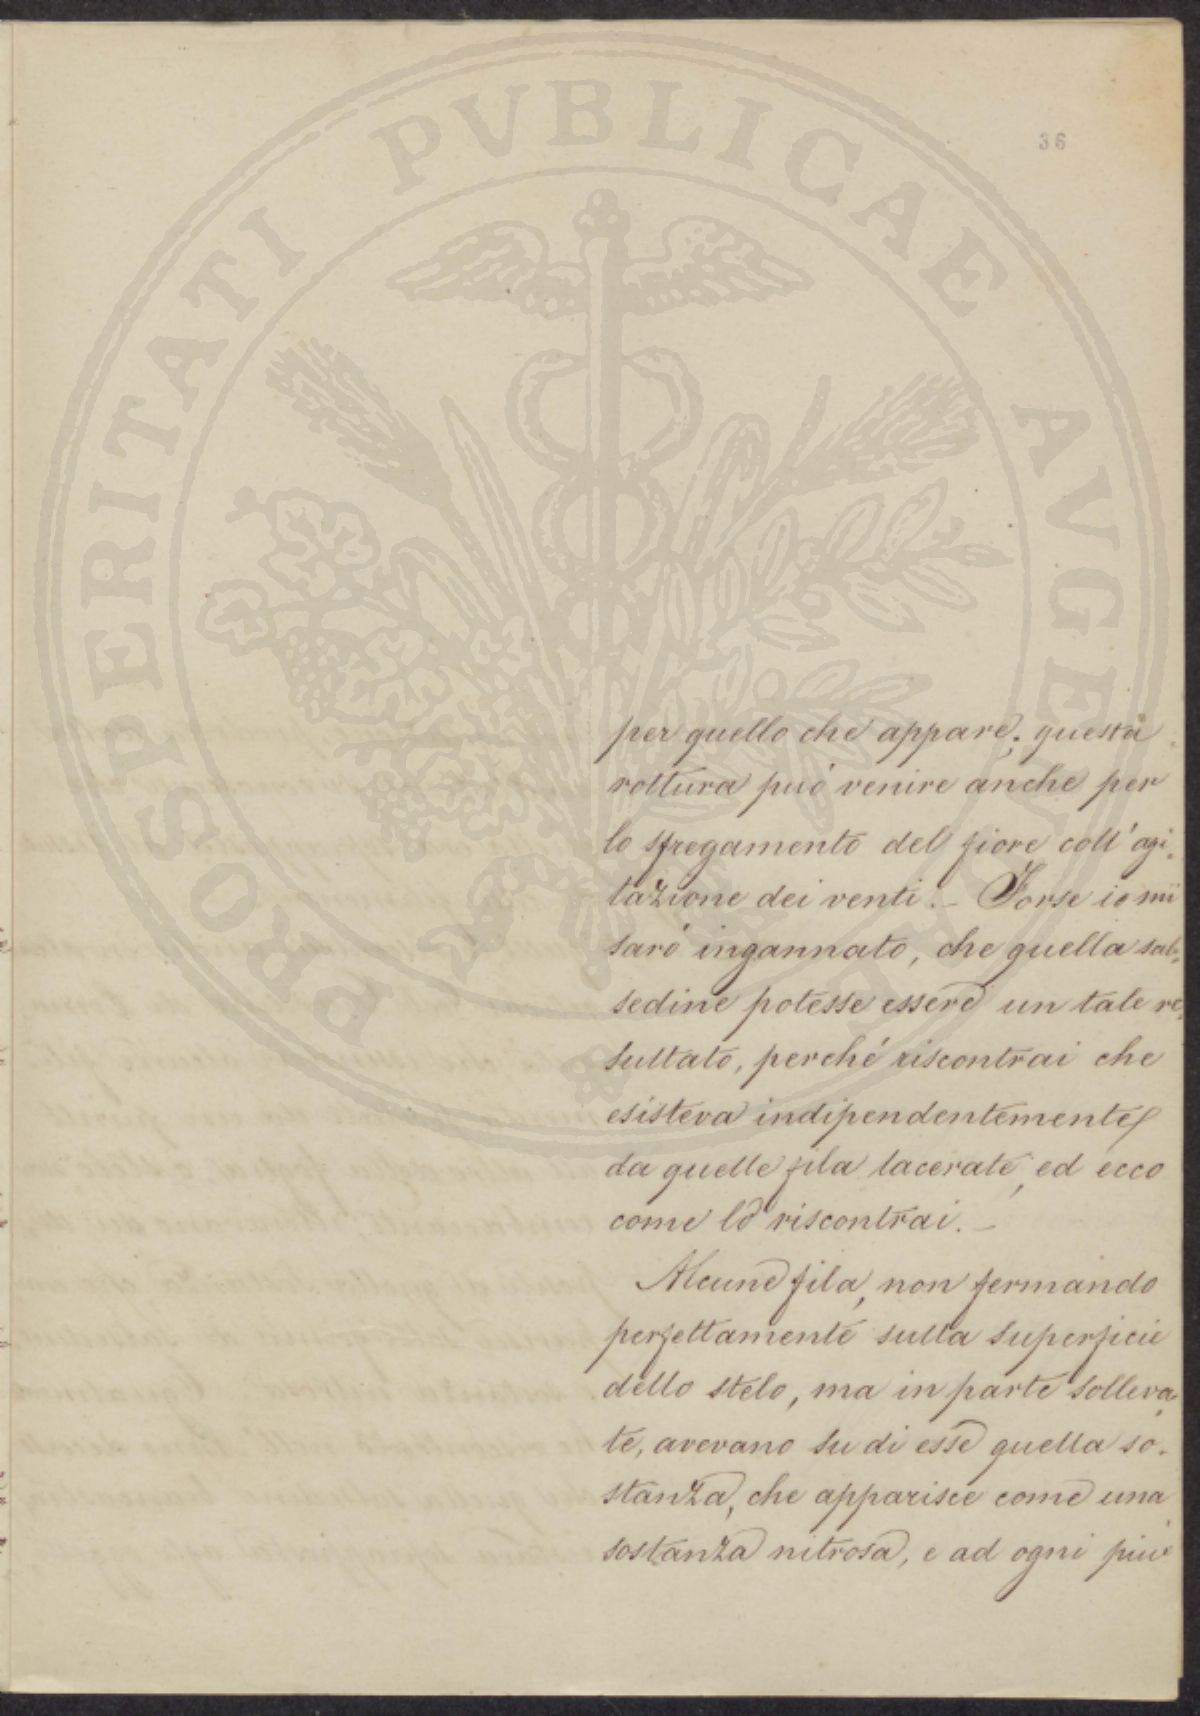 36
PROSPERITATI PUBLICAE AVGENDAE
per quello che appare; questa
rottura può venire anche per
lo sfregamento del fiore coll' agi-
tazione dei venti. – Forse io mi
sarò ingannato, che quella sal-
sedine potesse essere un tale re-
sultato, perché riscontrai che
esisteva indipendentemente
da quelle fila lacerate, ed ecco
come lo riscontrai. –
Alcune fila, non fermando
perfettamente sulla superficie
dello stelo, ma in parte solleva-
te, avevano su di esse quella so-
stanza, che apparisce come una
sostanza nitrosa, e ad ogni più